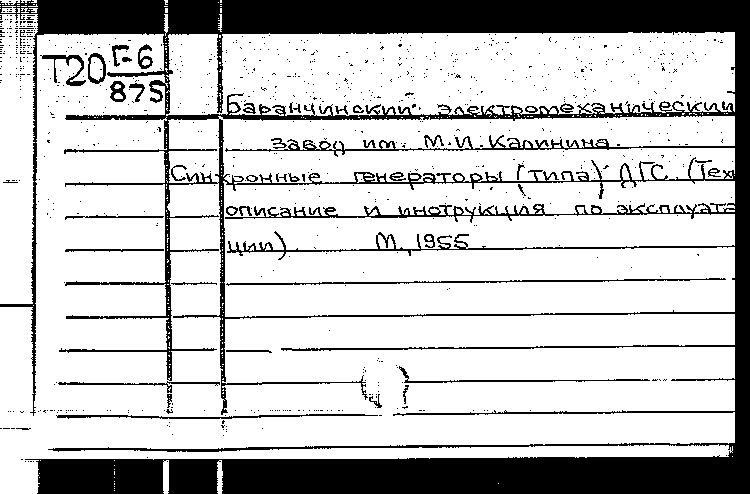 Т20 Г-6
875
Баранчинский электромеханический
завод им. М.И. Калинина.
Синхронные генераторы (типа) ДГС (Техн
описание и инструкция по эксплуата
ции). М., 1955.